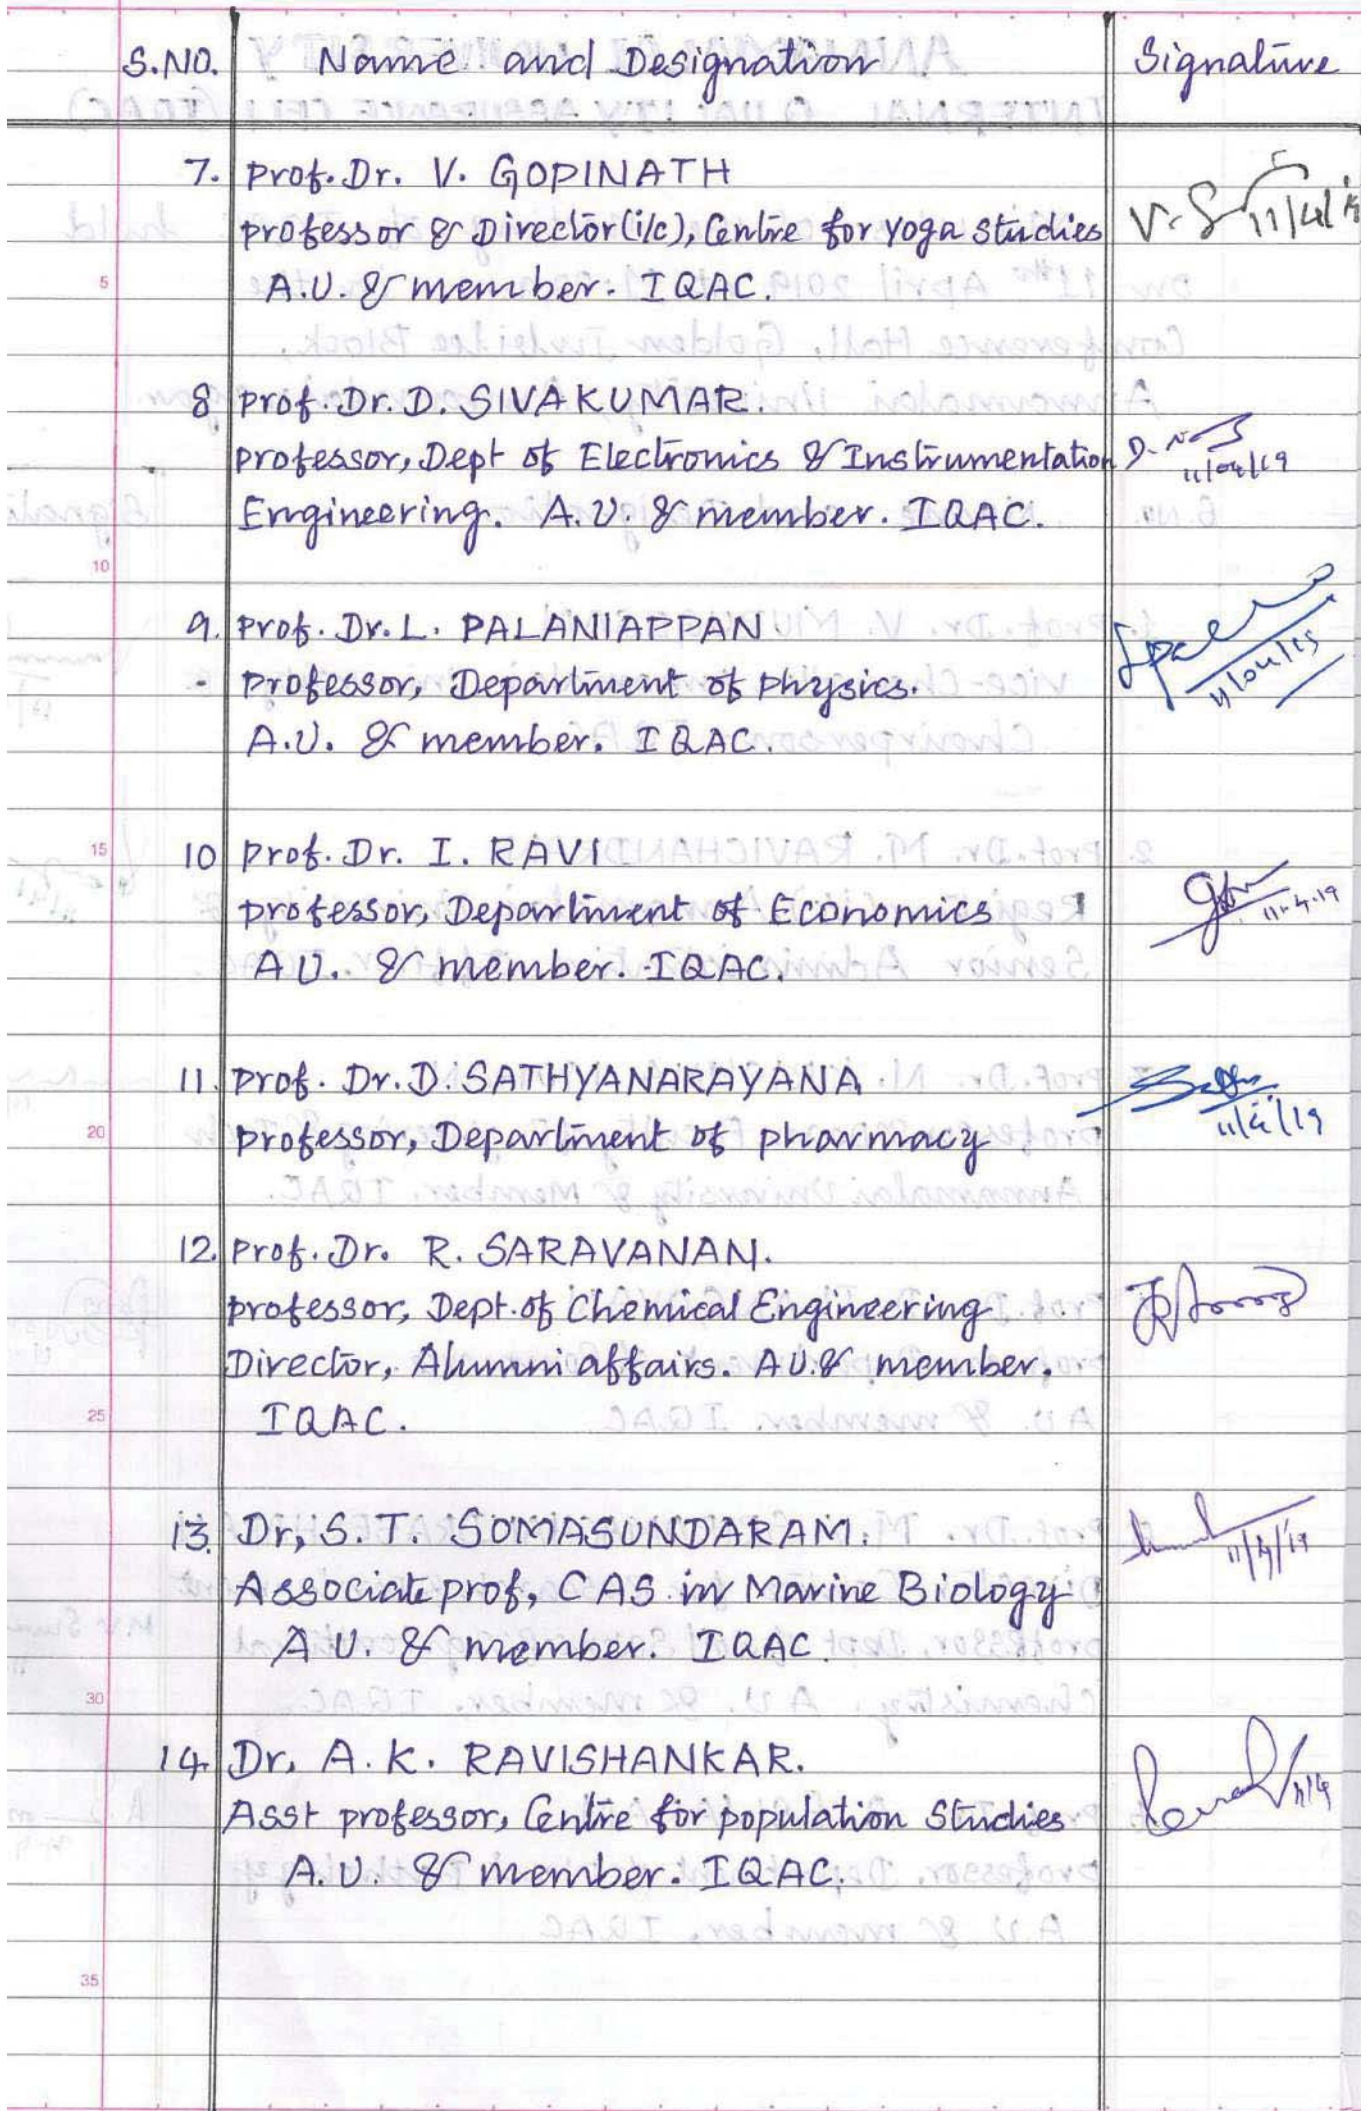 S.NO. Name and Designation Signature
7. Prof. Dr. V. GOPINATH
professor & Director (i/c), Centre for yoga studies
A.U. & member. IQAC.
V. S 11/4/19
5
8 Prof. Dr. D. SIVAKUMAR.
professor, Dept of Electronics & Instrumentation
Engineering. A.U. & member. IQAC.
11/04/19
10
9. Prof. Dr. L. PALANIAPPAN
professor, Department of physics.
A.U. & member. IQAC.
11/04/19
15
10 Prof. Dr. I. RAVI
professor, Department of Economics
A U. & member. IQAC.
11-4-19
11. Prof. Dr. D. SATHYANARAYANA
professor, Department of pharmacy
11/4/19
20
12. Prof. Dr. R. SARAVANAN.
professor, Dept. of Chemical Engineering
Director, Alumni affairs. A U. & member.
IQAC.
25
13. Dr, S. T. SOMASUNDARAM.
Associate prof, CAS in Marine Biology
A U. & member. IQAC.
11/4/19
30
14. Dr. A. K. RAVISHANKAR.
Asst professor, Centre for population Studies
A.U. & member. IQAC.
11/4
35